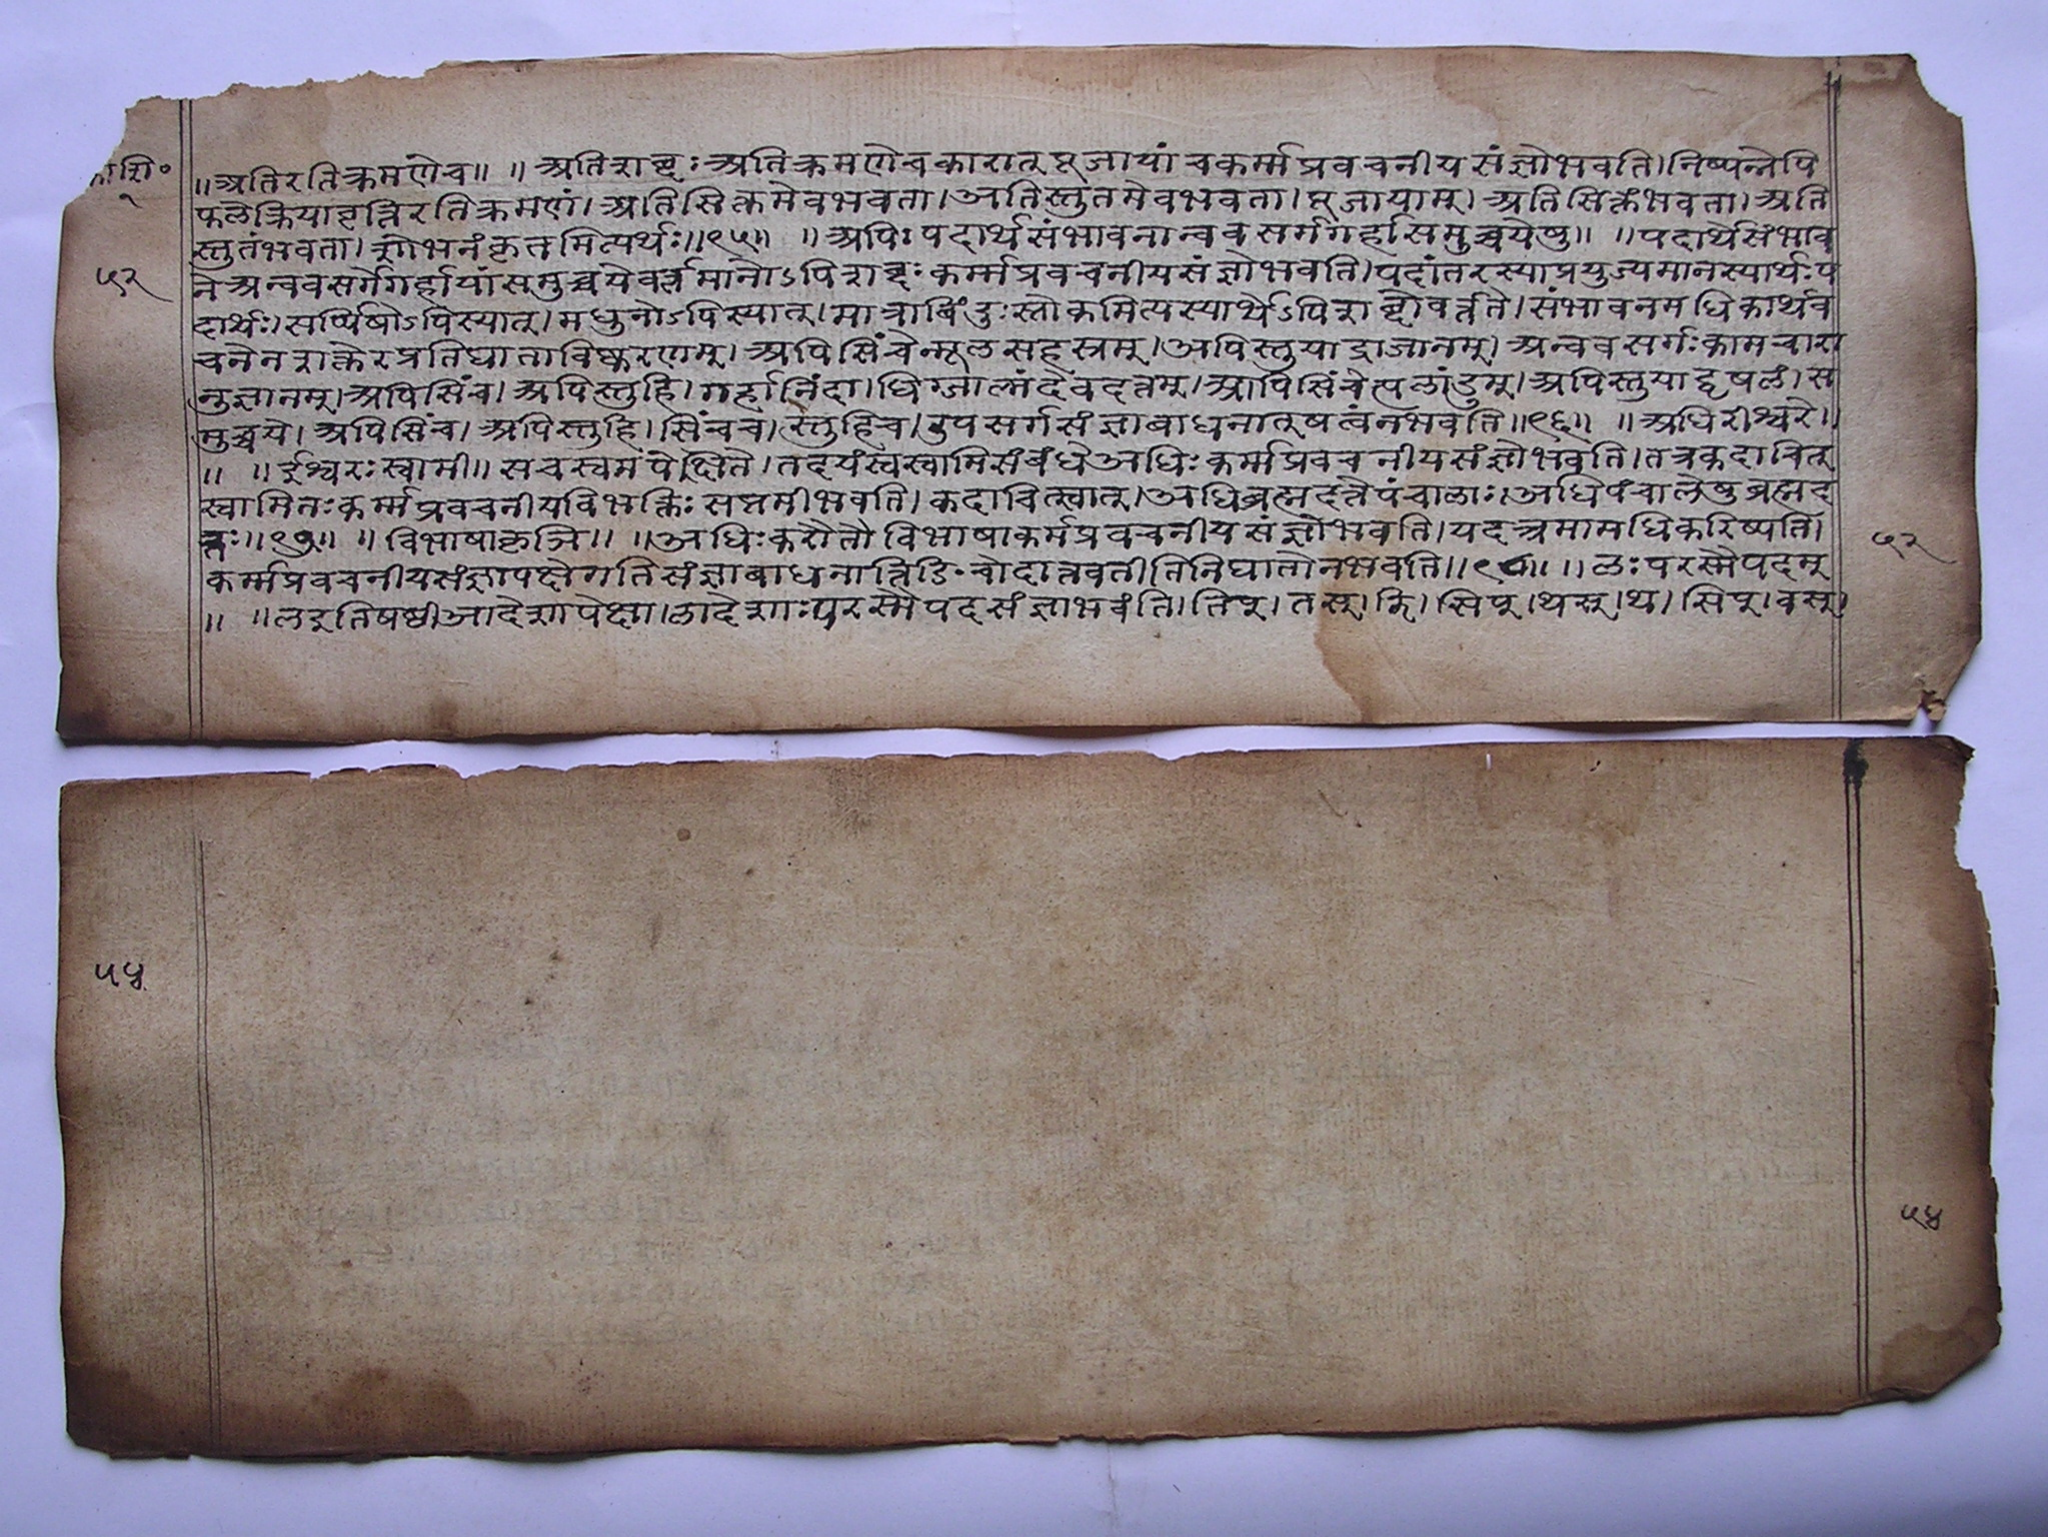 काशि॰
१
५२
॥अतिरतिक्रमणेच॥ ॥अतिशब्दःअतिक्रमणेचकारात्पूजायांचकर्म्मप्रवचनीयसंज्ञोभवति।निष्पन्नेपि
फलेक्रियाप्रवृत्तिरतिक्रमणं।अतिसिक्तमेवभवता।अतिस्तुतमेवभवता।पूजायाम्।अतिसिक्तंभवता।अति
स्तुतंभवता।शोभनंकृतमित्यर्थः॥९५॥ ॥अपिःपदार्थसंभावनान्ववसर्गगर्हासमुच्चयेषु॥ ॥पदार्थसंभाव
नेअन्ववसर्गेगर्हायांसमुच्चयेवर्त्तमानोऽपिशब्दःकर्म्मप्रवचनीयसंज्ञोभवति।पदांतरस्याप्रयुज्यमानस्यार्थःप
दार्थः।सर्प्पिषोऽपिस्यात्।मधुनोऽपिस्यात्।मात्राबिंदुःस्तोकमित्यस्यार्थेऽपिशब्दोवर्त्तते।संभावनमधिकार्थव
चनेनशक्तेरप्रतिघाताविष्करणम्।अपिसिंचेन्मूलसहस्रम्।अपिस्तुयाद्राजानम्।अन्ववसर्गःकामचारा
नुज्ञानम्।अपिसिंच।अपिस्तुहि।गर्हानिंदा।धिग्जाल्मंदेवदत्तम्।अपिसिंचेत्पलांडुम्।अपिस्तुयाद्वृषलं।स
मुच्चये।अपिसिंच।अपिस्तुहि।सिंचच।स्तुहिच।उपसर्गसंज्ञाबाधनात्षत्वंनभवति॥९६॥ ॥अधिरीश्वरे॥
॥ ॥ईश्वरःस्वामी॥सचस्वमपेक्षिते।तदयंस्वस्वामिसंबंधेअधिःकर्म्मप्रवचनीयसंज्ञोभवति।तत्रकदाचित्
स्वामिनःकर्म्मप्रवचनीयविभक्तिःसप्तमीभवति।कदाचित्स्वात्।अधिब्रह्मदत्तेपंचालाः।अधिपंचालेषुब्रह्मद
त्तः॥९७॥ ॥विभाषाकृञि॥ ॥अधिःकरोतौविभाषाकर्मप्रवचनीयसंज्ञोभवति।यदत्रमामधिकरिष्यति।
कर्म्मप्रवचनीयसंज्ञापक्षेगतिसंज्ञाबाधनात्तिङिचोदात्तवतीतिनिघातोनभवति॥९८॥ ॥लःपरस्मैपदम्
॥ ॥लइतिषष्ठीआदेशापेक्षा।लादेशाःपरस्मैपदसंज्ञाभवंति।तिप्।तस्।झि।सिप्।थस्।थ।मिप्।वस्।
५२
५४
५४